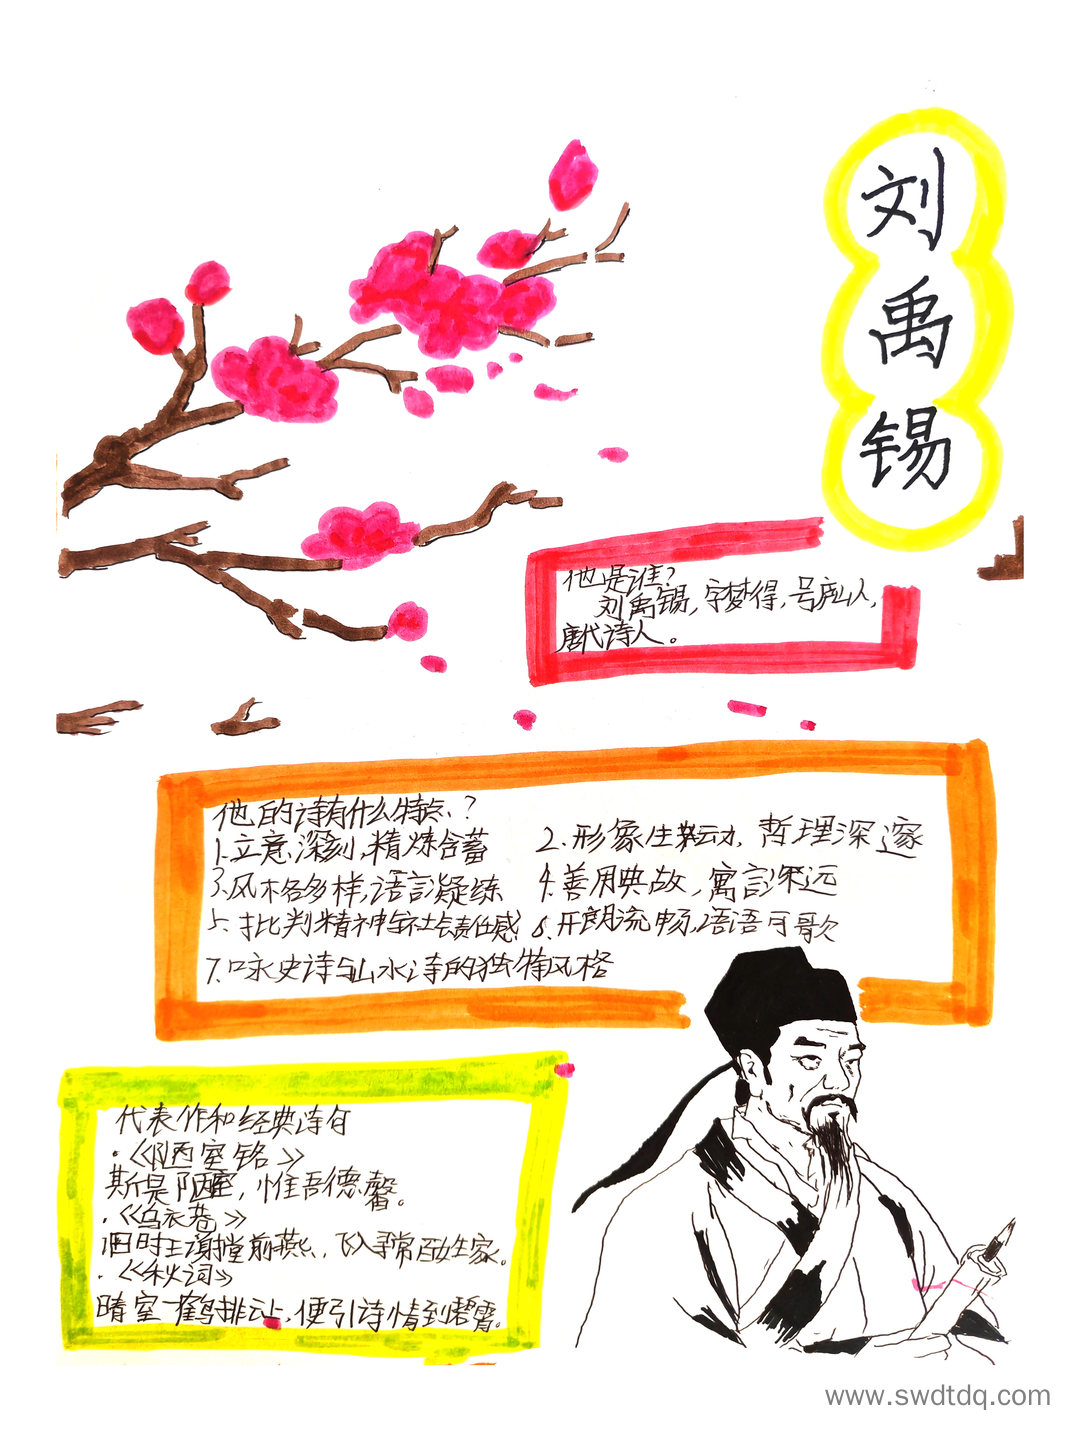 刘禹锡
他是谁?
刘禹锡,字梦得,号庐山人,
唐代诗人。
他的诗有什么特点?
1.立意深刻,精炼含蓄
2.形象生动,哲理深邃
3.风格多样,语言凝练
4.善用典故,寓言深远
5.批判精神与社会责任感
6.开朗流畅,语语可歌
7.咏史诗与山水诗的独特风格
代表作和经典诗句
·《陋室铭》
斯是陋室,惟吾德馨。
·《乌衣巷》
旧时王谢堂前燕,飞入寻常百姓家。
·《秋词》
晴室一鹤排云上,便引诗情到碧霄。
www.swdtdq.com